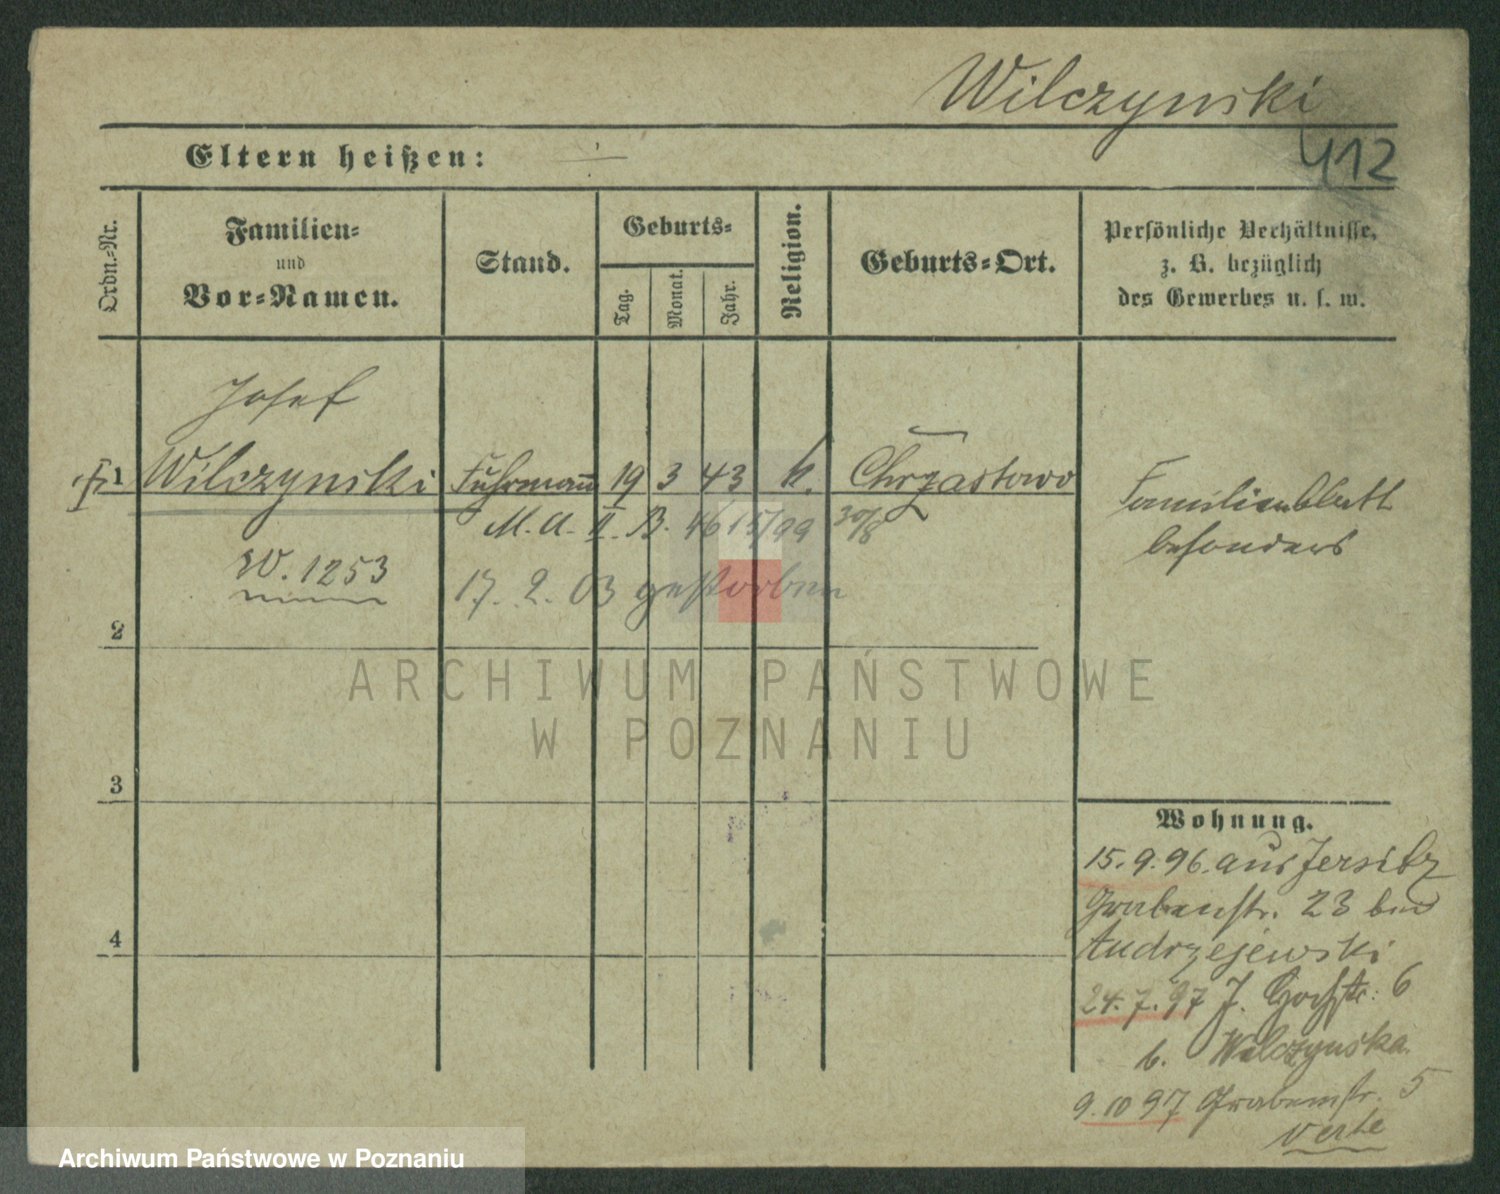 Wilczynski
412
Eltern heißen:
Ordn.-Nr.
Familien-
und
Vor-Namen.
Stand.
Geburts-
Tag.
Monat.
Jahr.
Religion.
Geburts-Ort.
Persönliche Verhältnisse,
z. B. bezüglich
des Gewerbes u. s. w.
Josef
1 Wilczynski Fuhrmann 19 3 43 k. Chrzastowo
Familienblatt
besonders
M. A. II. B. 46 15/99 30/8
W. 1253
17. 2. 03 gestorben
2
ARCHIWUM PAŃSTWOWE
W POZNANIU
3
Wohnung.
15. 9. 96. aus Jersitz
Grabenstr. 23 bei
Andrzejewski
4
24. 7. 97 J. 6
b. Wilczynska
9. 10 97 Grabenstr. 5
verte
Archiwum Państwowe w Poznaniu